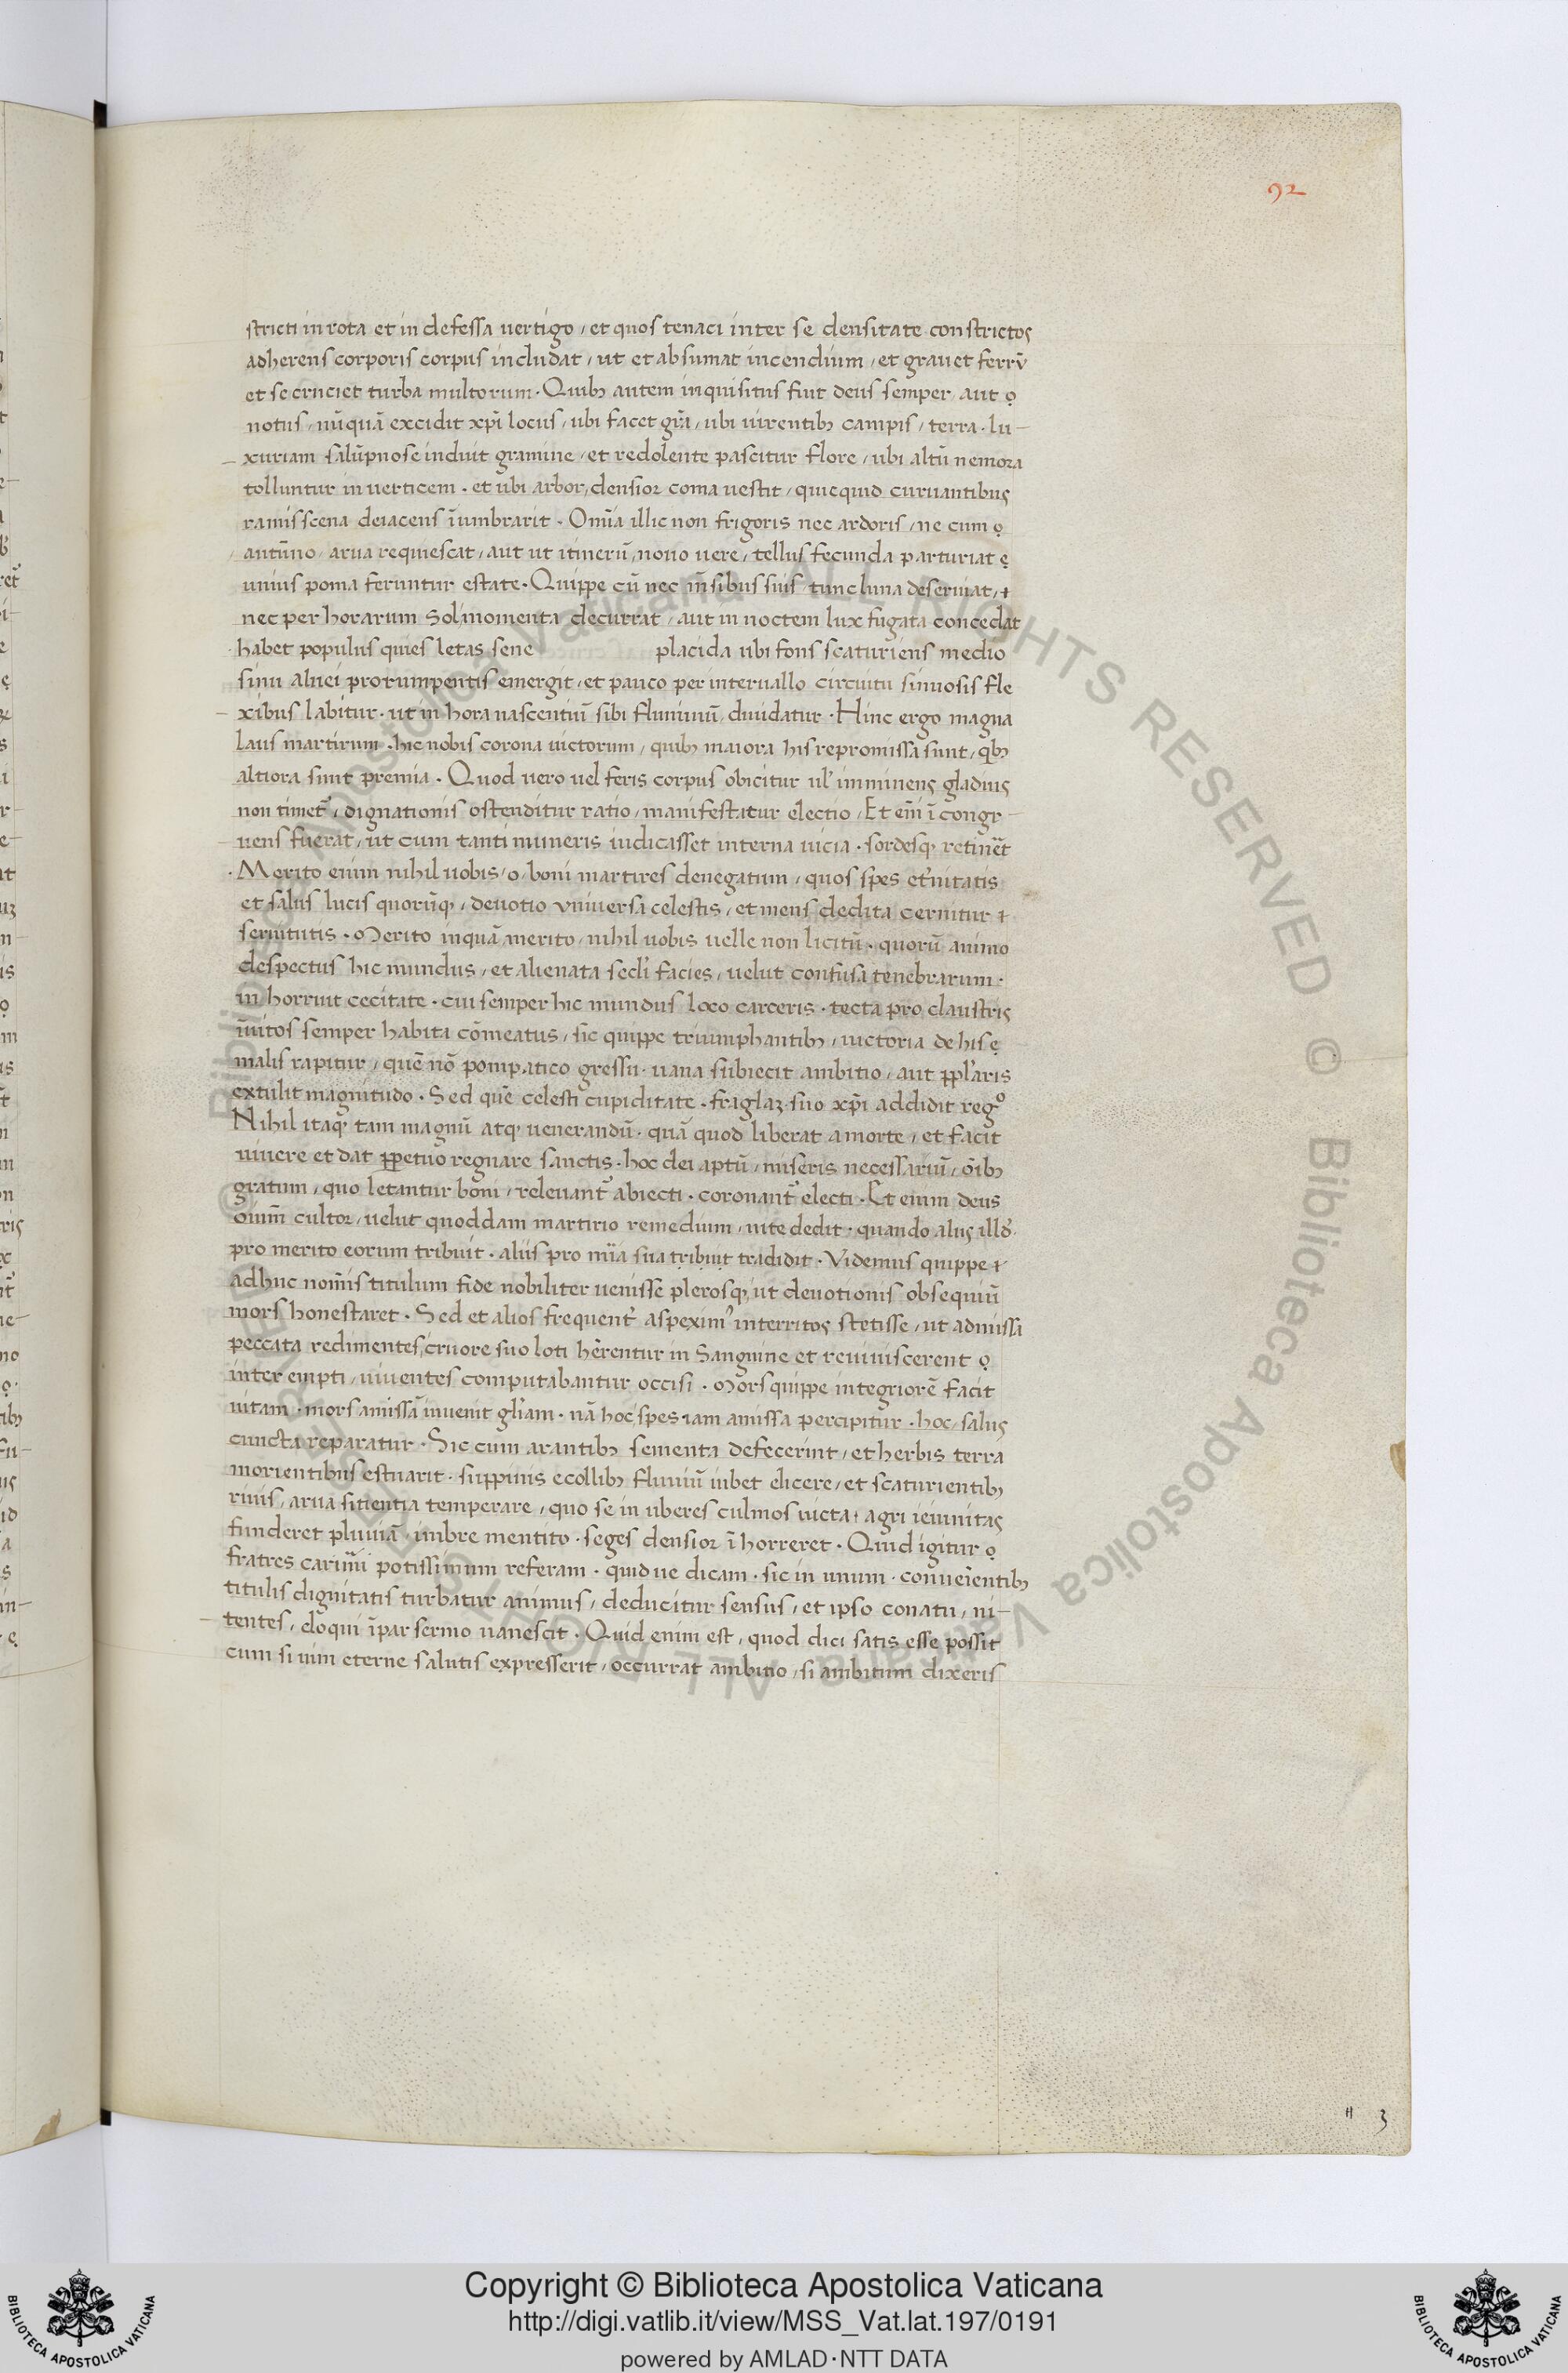 92
stricti in rota et in defessa uertigo / et quos tenaci inter se densitate constrictos
adherens corporis corpus includat / ut et absumat incendium / et grauet ferrū
et se cruciet turba multorum · Quibꝫ autem inquisitus fiut deus semper aut
notus / nūquā excidit xp̄i locus / ubi facet grā / ubi uirentibꝫ campis / terra · lu-
xuriam salūpnose induit gramine / et redolente pascitur flore / ubi altū nemora
tolluntur in uerticem · et ubi arbor, densior coma uestit / quicquid curuantibus
ramis scena deiacens īumbrarit · Om̄ia illic non frigoris nec ardoris / ne cum
autūno / arua requiescat / aut ut itinerū, nouo uere / tellus fecunda parturiat
unius poma feruntur estate · Quippe cū nec m̄sibus suis tunc luna deseruiat /
nec per horarum sol momenta decurrat / aut in noctem lux fugata concedat
habet populus quies letas sene placida ubi fons scaturiens medio
sinu aluei prorumpentis emergit / et pauco per interuallo circuitu sinuosis fle
xibus labitur · ut in hora nascentiū sibi fluminū diuidatur · Hinc ergo magna
laus martirum · hic nobis corona uictorum / quibꝫ maiora his repromissa sunt / qbꝫ
altiora sunt premia · Quod uero uel feris corpus obicitur ul' imminens gladius
non timet² / dignationis ostenditur ratio / manifestatur electio / Et em̄ ī congr
uens fuerat / ut cum tanti muneris iudicasset interna uicia · sordesq, retinēt
· Merito enim nihil uobis / o / boni martires denegatum / quos spes et'nitatis
et salus lucis quorūq / deuotio vniuersa celestis / et mens dedita cernitur
seruitutis · Merito inquā merito / nihil uobis uelle non licitū · quorū animo
despectus hic mundus / et alienata secl'i facies / uelut confusa tenebrarum ·
in horruit cecitate · cui semper hic mundus loco carceris · tecta pro claustris
īuitos semper habita cōmeatus / sic quippe triumphantibꝫ / uictoria de his
malis rapitur / quē nō pompatico gressu · uana subiecit ambitio / aut ꝑpl'aris
extulit magnitudo · Sed quē celesti cupiditate · fraglaꝫ suo xp̄i addidit regº
Nihil itaq tam magnū atq uenerandū · quā quod liberat a morte / et facit
uiuere et dat ꝑpetuo regnare sanctis · hoc dei aptū / miseris necessariū / ōibꝫ
gratum / quo letantur boni / releuant² abiecti · coronant² electi · Et enim deus
oium̄ cultor / uelut quoddam martirio remedium / uite dedit · quando aliis illd'
pro merito eorum tribuit · aliis pro mīa sua tribuit tradidit · Videmus quippe
adhuc nom̄is titulum fide nobiliter uenisse plerosq, ut deuotionis obsequiū
mors honestaret · Sed et alios frequent' aspexim' interritos stetisse / ut admissa
peccata redimentes, cruore suo loti hērentur in sanguine et reuiuiscerent
inter empti / uiuentes computabantur occisi · Mors quippe integriorē facit
uitam · mors amissā inuenit gl'iam · nā hoc, spes iam amissa percipitur · hoc / salus
cuncta reparatur · Sic cum arantibꝫ sementa defecerint / et herbis terra
morientibus estuarit · suppinis e collibꝫ fluuiū iubet elicere / et scaturientibꝫ
riuis / arua sitientia temperare / quo se in uberes culmos uicta · agri ieiunitas
funderet pluuiā / imbre mentito · seges densior ī horreret · Quid igitur
fratres carim̄i potissimum referam · quid ue dicam · sic in unum · conueientibꝫ
titulis dignitatis turbatur animus / deducitur sensus / et ipso conatu / ni-
tentes / eloqui īpar sermo uanescit · Quid enim est / quod dici satis esse possit
cum si uim eterne salutis expresserit / occurrat ambitio / si ambitum dixeris
3
© Biblioteca Apostolica Vaticana ALL RIGHTS RESERVED © Biblioteca Apostolica Vaticana ALL RIGHTS RESERVED
BIBLIOTECA APOSTOLICA VATICANA
Copyright © Biblioteca Apostolica Vaticana
http://digi.vatlib.it/view/MSS_Vat.lat.197/0191
powered by AMLAD·NTT DATA
BIBLIOTECA APOSTOLICA VATICANA